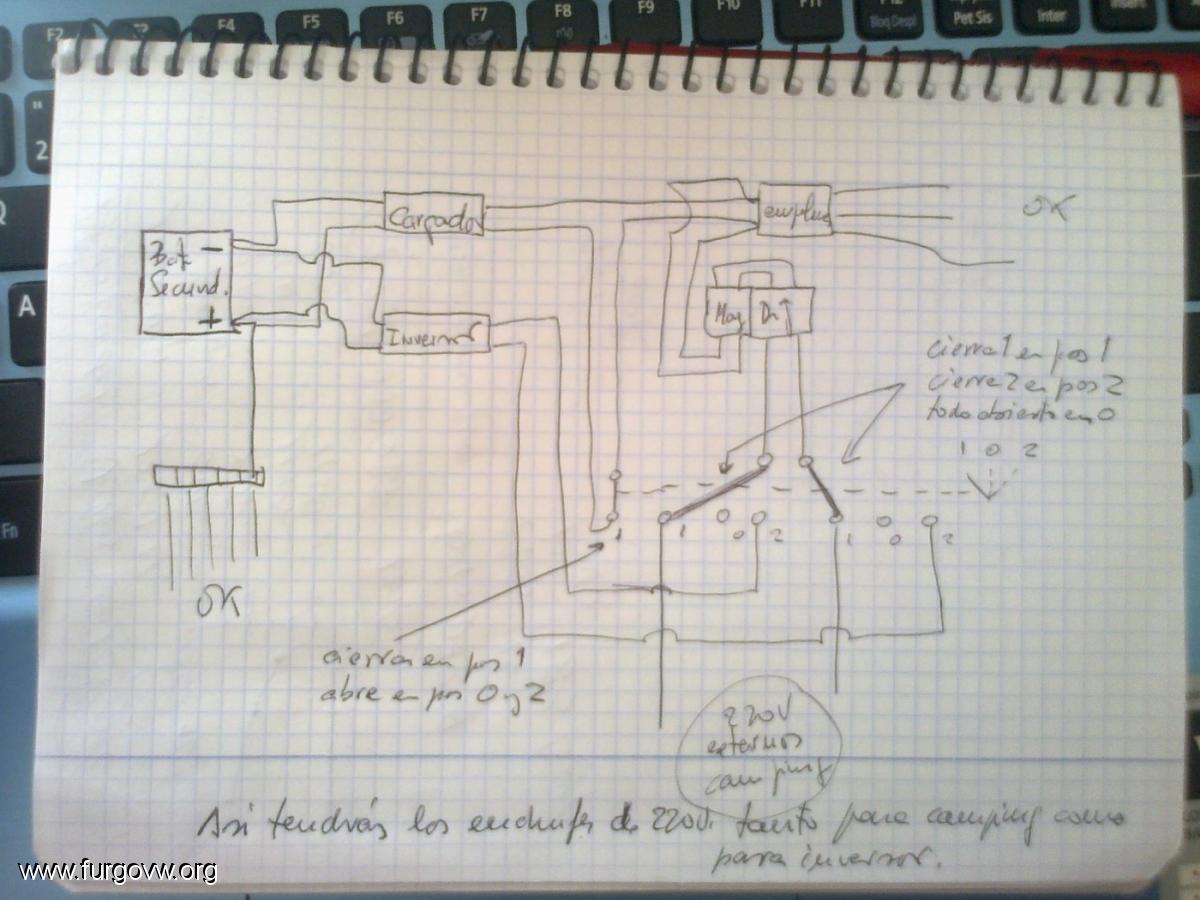 F2
F4
F5
F6
F7
F8
F9
F10
F11
Bloq Despl
Pet Sis
Inter
Insert
"
2
A
Fn
Cargador
Bat.
Secund.
-
+
Inversor
Mag
OK
cierra 1 en pos 1
cierra 2 en pos 2
todo abierto en 0
1 0 2
1
1 0 2
1 0 2
OK
cierra en pos 1
abre en pos 0 y 2
220V
externos
camping
Asi tendrás los enchufes de 220V. tanto para camping como
para inversor.
www.furgovw.org